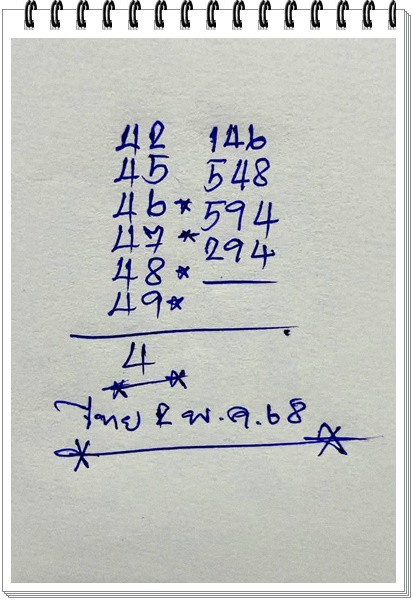 42 146
45 548
46* 594
47* 294
48*
49*
4
ไทย 2 พ.ค.68